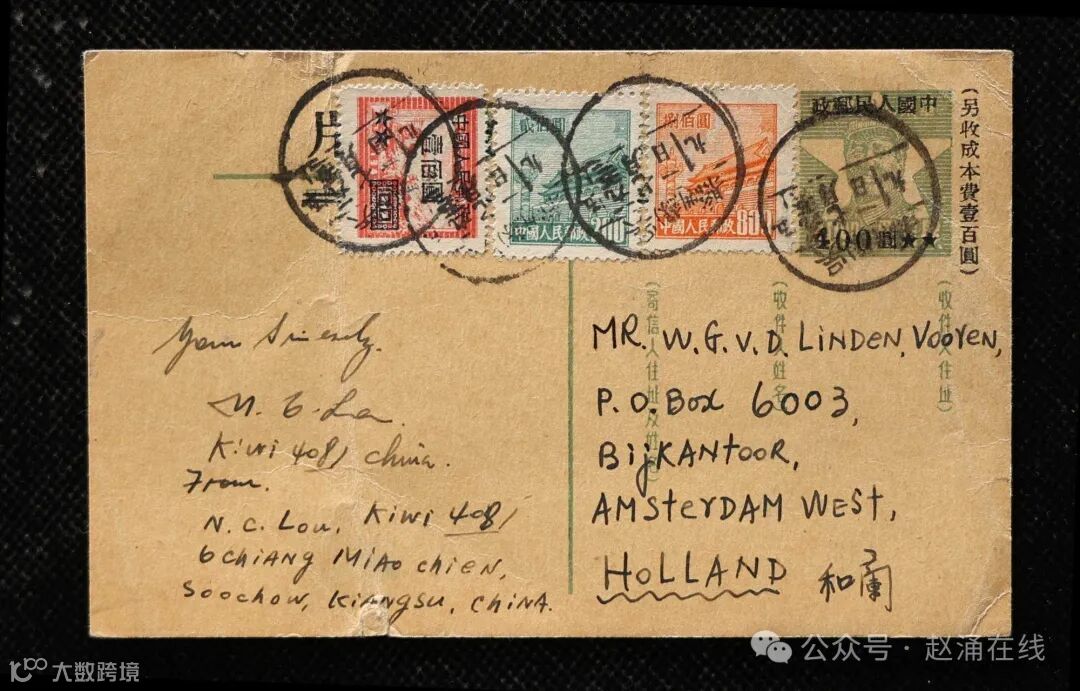 片
中國人民
壹佰圓
貳佰圓
中國人民郵政200
捌佰圓
中國人民郵政800
中國人民郵政
400圓
(另收成本費壹百圓)
(收件人住址)
(收件人姓名)
(寄信人住址及姓名)
Yours Sincerely.
Kiwi 4081 China.
From.
N.C. Lou, Kiwi 4081
6 CHIANG MIAO CHIEN,
SOOCHOW, KIANGSU, CHINA.
MR. W.G.V.D. LINDEN, VOOREN,
P.O. Box 6003,
BIJKANTOOR,
AMSTERDAM WEST,
HOLLAND 和蘭
公众号·赵涌在线
大数跨境